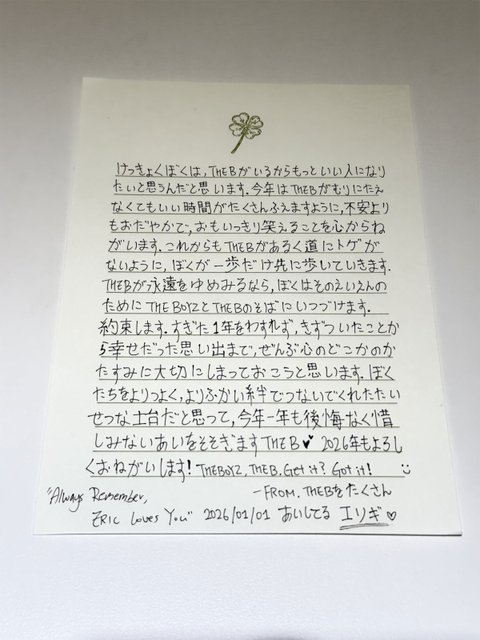 けっきょくぼくは, THE Bがいるからもっといい人になり
たいと思うんだと思います. 今年はTHE Bがむりにたえ
なくてもいい時間がたくさんふえますように, 不安より
もおだやかで, おもいっきり笑えることを心からね
がいます. これからもTHE Bがあるく道にトゲが
ないように, ぼくが一歩だけ先に歩いていきます.
THE Bが永遠をゆめみるなら, ぼくはそのえいえんの
ためにTHE BOYZとTHE Bのそばにいつづけます.
約束します. すぎた1年をわすれず, きずついたことか
ら幸せだった思い出まで, ぜんぶ心のどこかのか
たすみに大切にしまっておこうと思います. ぼく
たちをよりつよく, よりふかい絆でつないでくれたたい
せつな土台だと思って, 今年一年も後悔なく惜
しみないあいをそそぎます THE B♥ 2026年もよろし
くおねがいします! THE BOYZ, THE B, Get it? Got it! :)
- FROM. THE Bをたくさん
"Always Remember,
ERIC Loves You" 2026/01/01 あいしてる エリギ♡